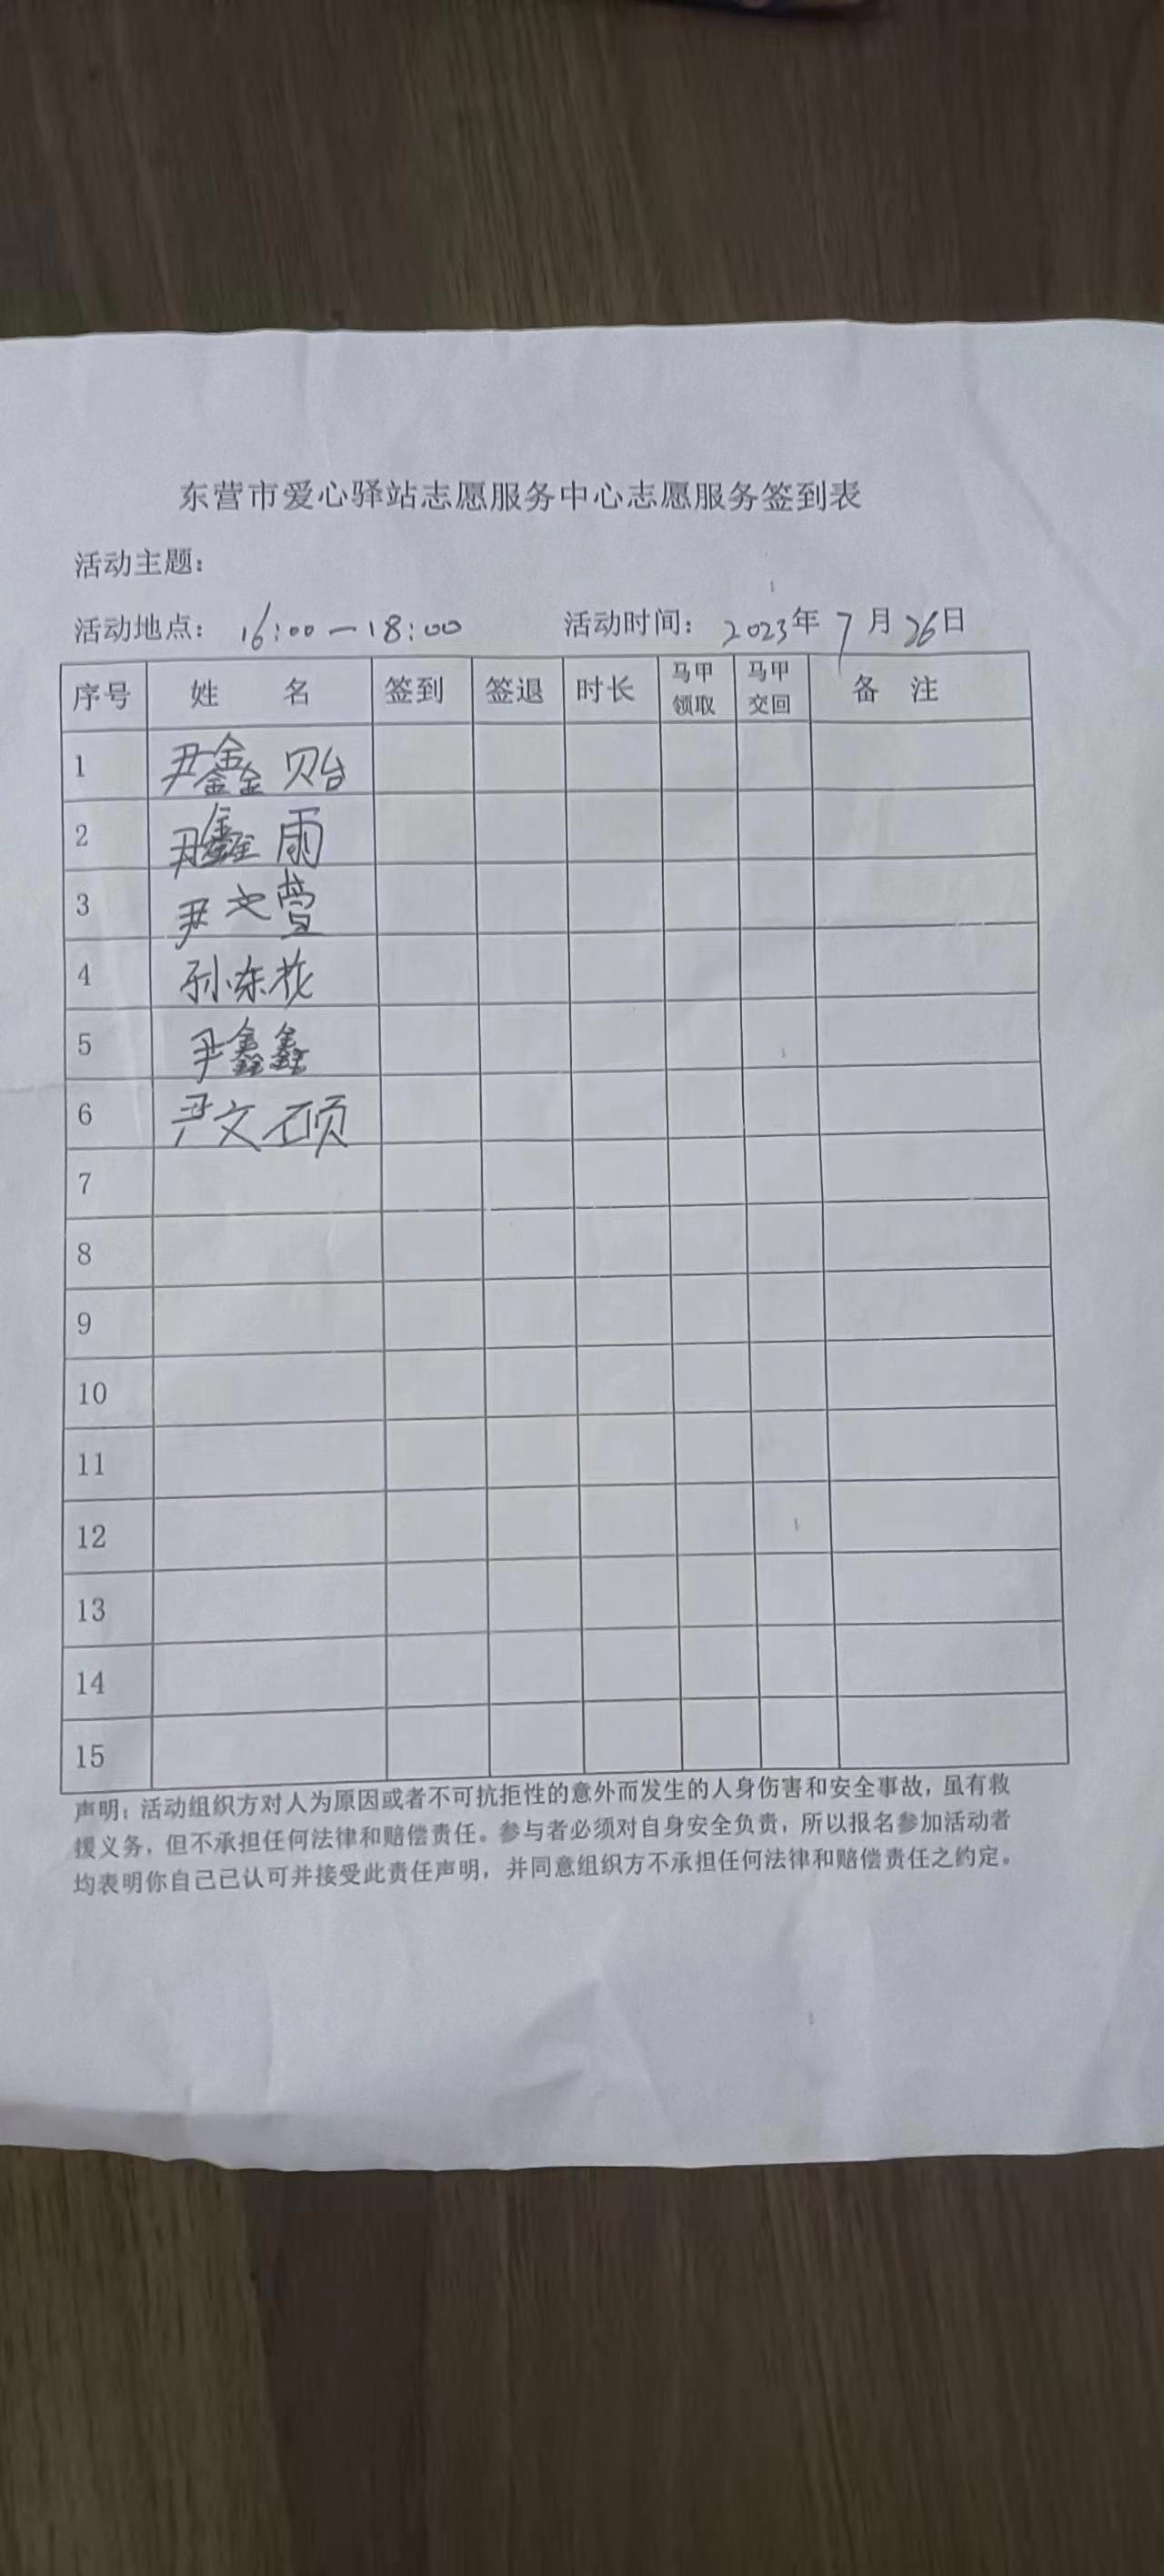 东营市爱心驿站志愿服务中心志愿服务签到表
活动主题：
活动地点： 16:00—18:00 活动时间： 2023年 7月 26日
序号 姓 名 签到 签退 时长 马甲领取 马甲交回 备 注
1 尹鑫贻
2 尹鑫雨
3 尹文萱
4 孙东花
5 尹鑫鑫
6 尹文硕
7
8
9
10
11
12
13
14
15
声明：活动组织方对人为原因或者不可抗拒性的意外而发生的人身伤害和安全事故，虽有救
援义务，但不承担任何法律和赔偿责任。参与者必须对自身安全负责，所以报名参加活动者
均表明你自己已认可并接受此责任声明，并同意组织方不承担任何法律和赔偿责任之约定。